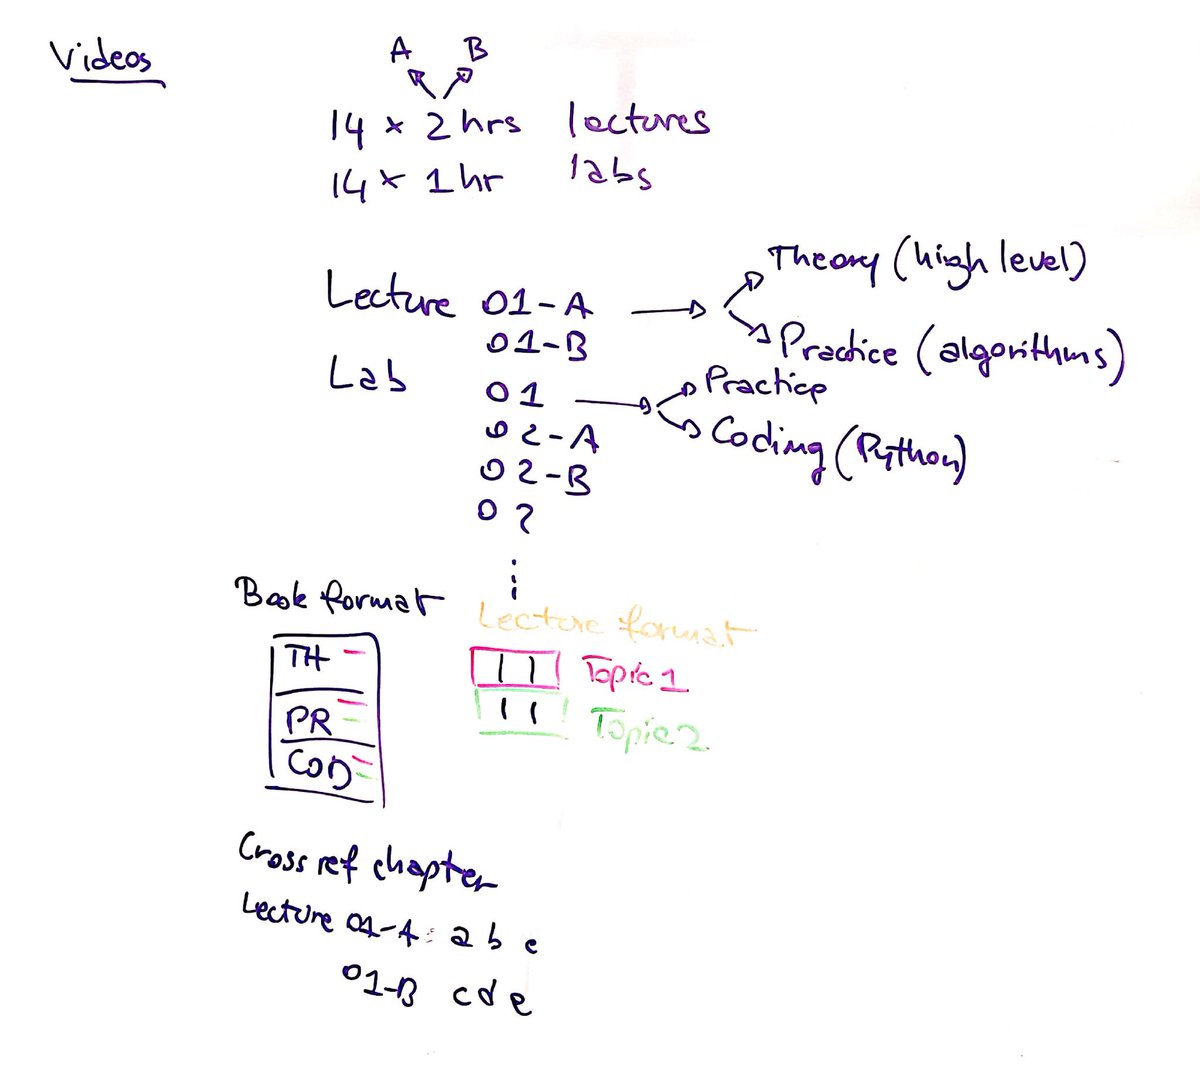 Videos
A B
14 x 2 hrs lectures
14 x 1 hr labs
Theory (high level)
Lecture 01-A
Practice (algorithms)
01-B
Lab
01
Practice
Coding (Python)
02-A
02-B
02
Book format
Lecture format
TH
PR
COD
Topic 1
Topic 2
Cross ref chapter
Lecture 01-A: a b c
01-B c d e